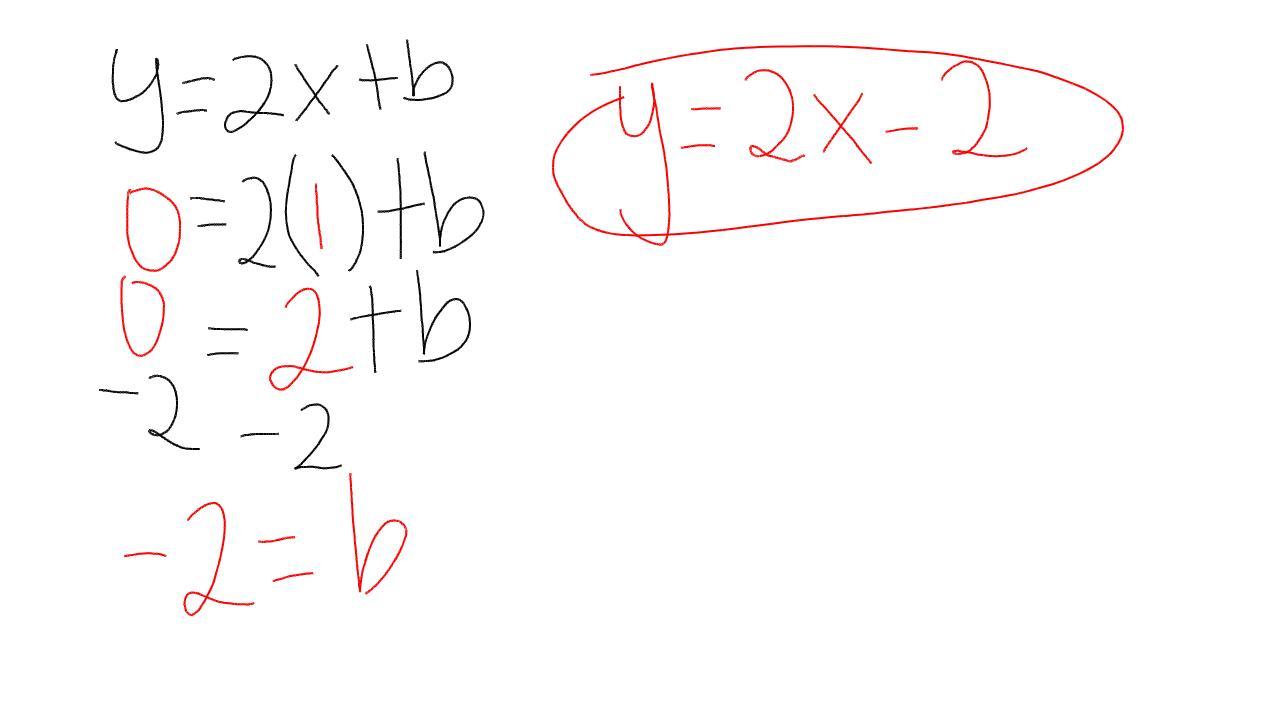 y=2x+b
0=2(1)+b
0=2+b
-2 -2
-2=b
y=2x-2